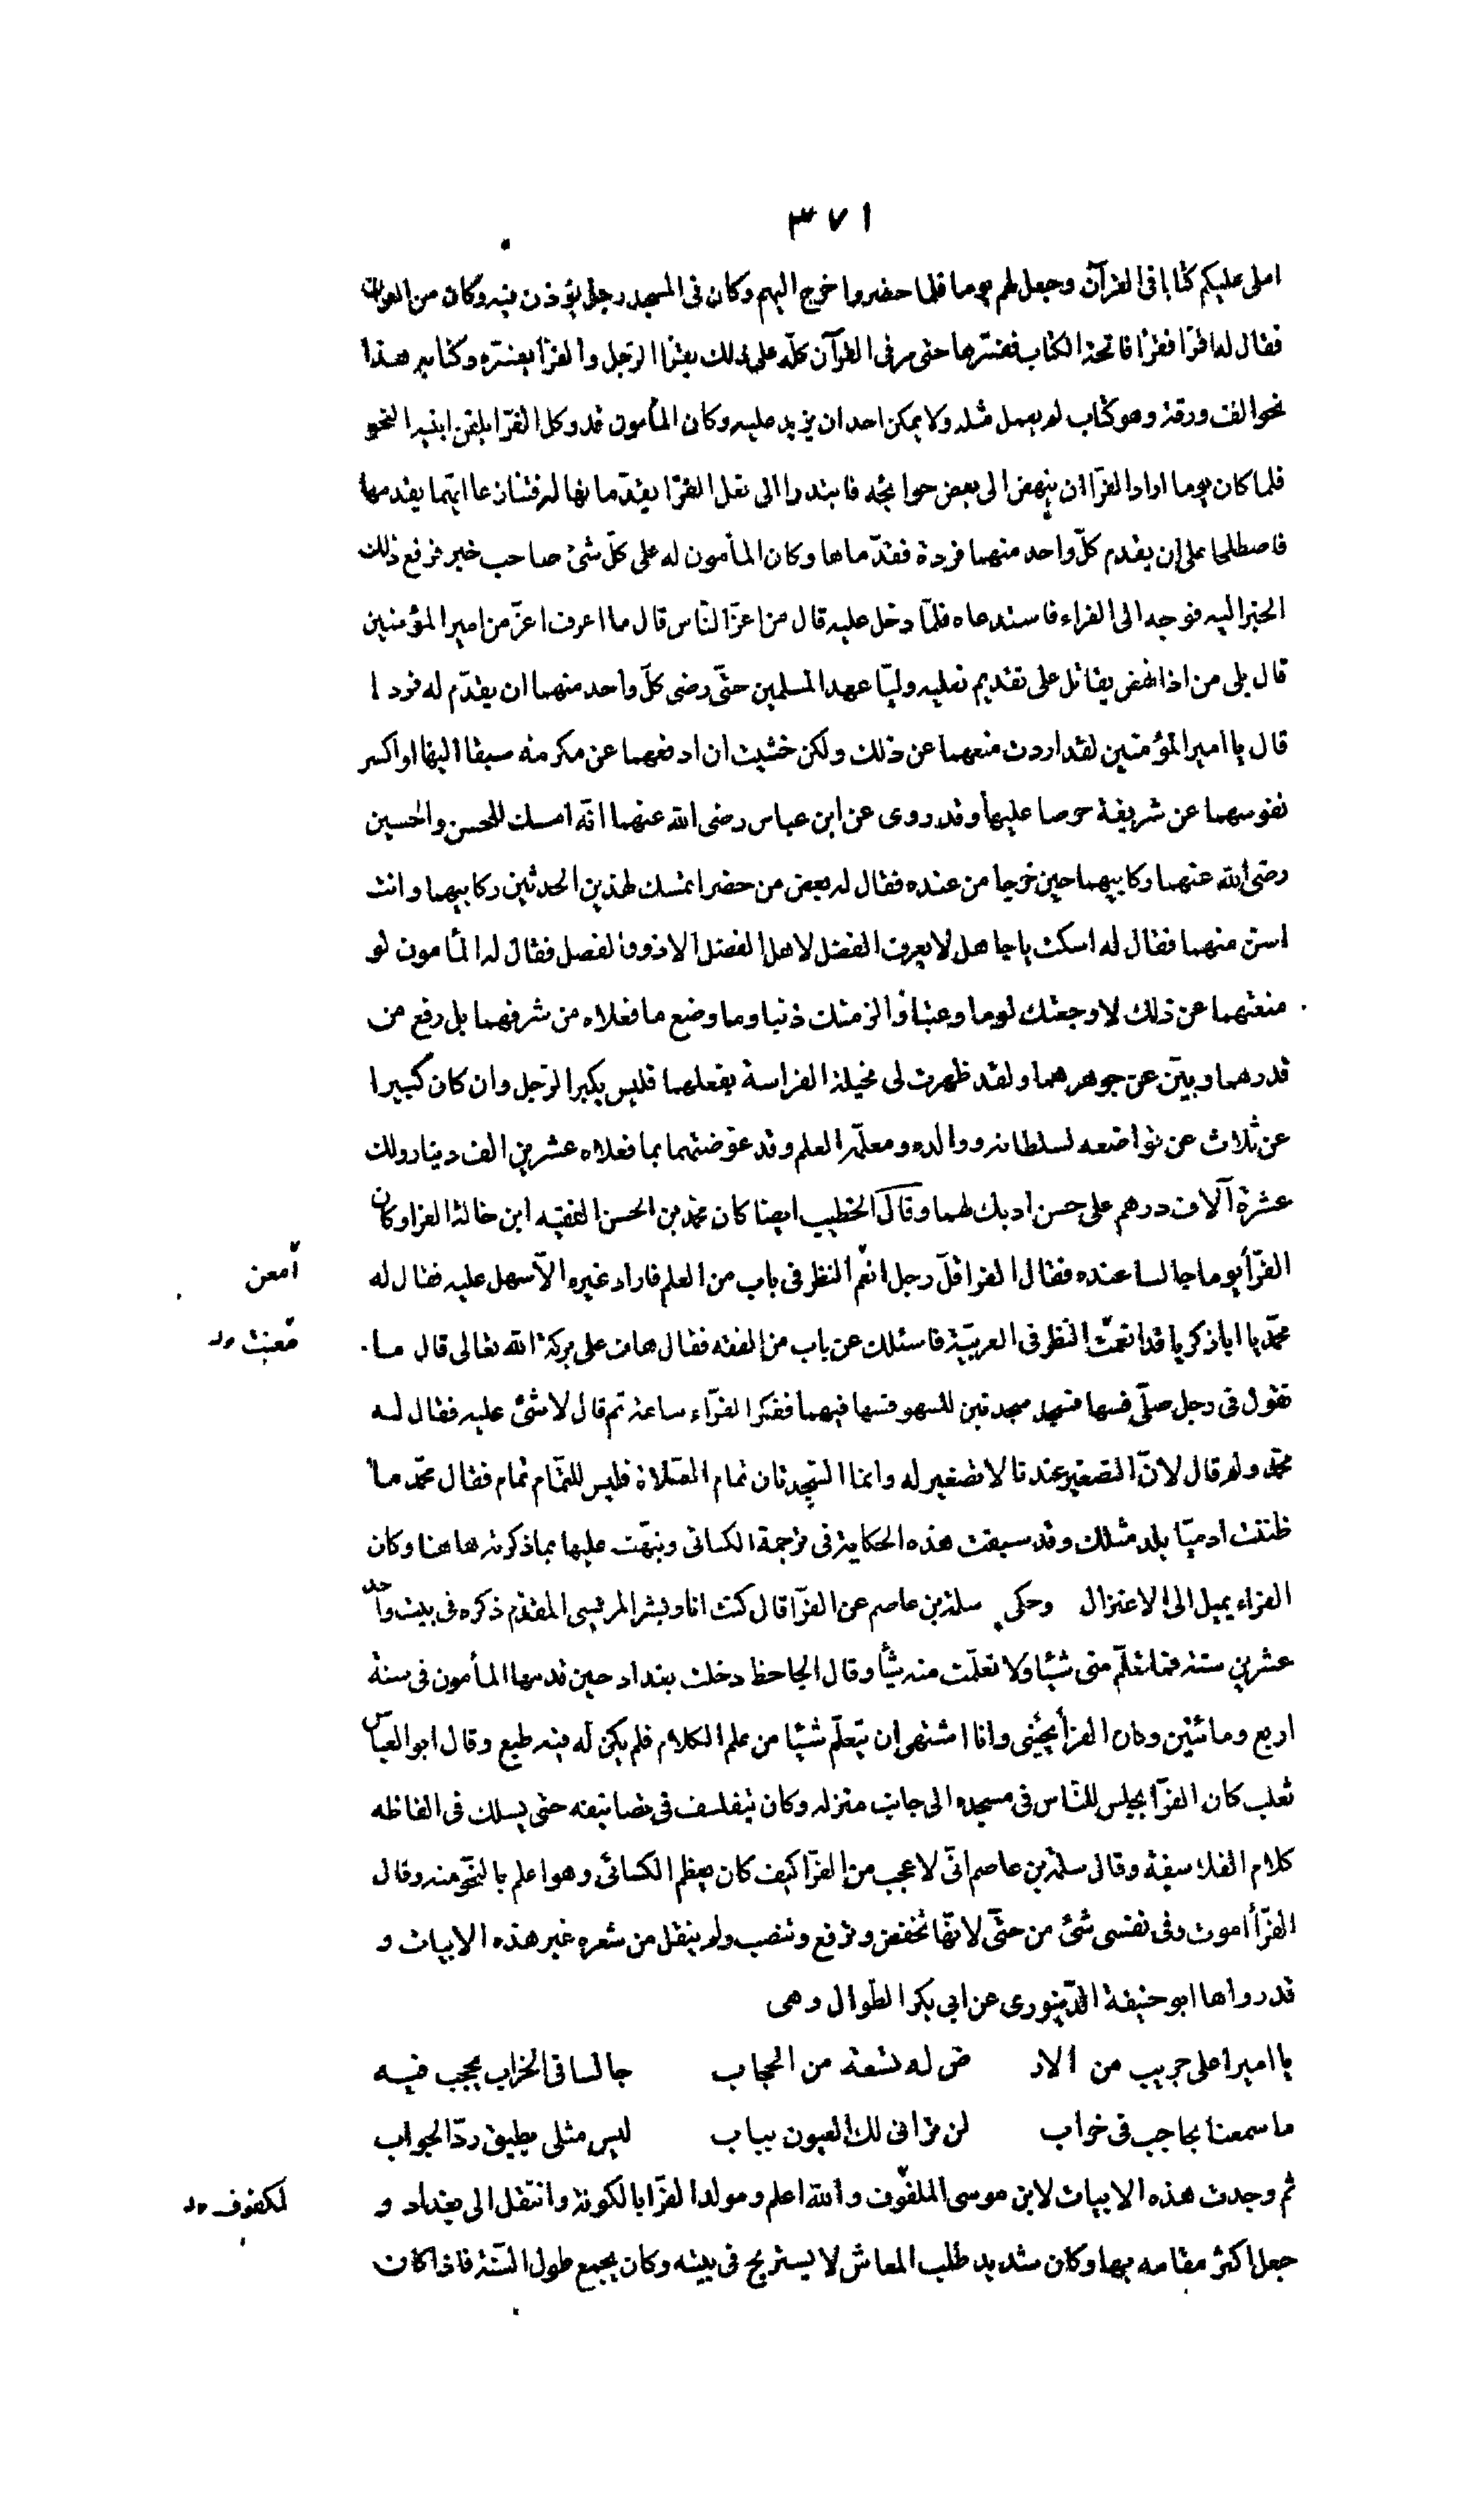 ٣٧١
املى عليكم كتابا فى القرآن وجعل لهم يوما فلما حضروا خرج اليهم وكان فى المسجد رجل يؤذن فيه وكان من القراء
فقال له اقرأ فقرأ فاتحة الكتاب ففسّرها حتى مر فى القرآن كلّه على ذلك يقرأ الرّجل والفرّا يفسّره وكتابه هذا
نحو الف ورقة وهو كتاب لم يعمل مثله ولا يمكن احد ان يزيد عليه وكان المأمون قد وكل الفرّا يلقن ابنيه النحو
فلما كان يوما اراد الفرّا ان ينهض الى بعض حوائجه فابتدرا الى نعل الفرّا يقدّمانها له فتنازعا ايّهما يقدمها
فاصطلحا على ان يقدم كلّ واحد منهما فردة فقدّماها وكان المأمون له على كلّ شئ صاحب خبر فرفع ذلك
الخبر اليه فوجه الى الفراء فاستدعاه فلمّا دخل عليه قال من اعزّ النّاس قال ما اعرف اعزّ من امير المؤمنين
قال بلى من اذا نهض يقاتل على تقديم نعليه وليّا عهد المسلمين حتّى رضى كلّ واحد منهما ان يقدّم له فردا
قال يا امير المؤمنين لقد اردت منعهما عن ذلك ولكن خشيت ان ادفعهما عن مكرمة سبقا اليها او اكسر
نفوسهما عن شريفة حرصا عليها وقد روى عن ابن عباس رضى الله عنهما انّه امسك للحسن والحسين
رضى الله عنهما ركابيهما حين خرجا من عنده فقال له بعض من حضر اتمسك لهذين الحدثين ركابيهما وانت
اسن منهما فقال له اسكت يا جاهل لا يعرف الفضل لاهل الفضل الا ذوو الفضل فقال له المأمون لو
منعتهما عن ذلك لاوجعتك لوما وعتبا والزمتك ذنبا وما وضع ما فعلاه من شرفهما بل رفع من
قدرهما وبيّن عن جوهرهما ولقد ظهرت لى مخيلة الفراسة بفعلهما فليس يكبر الرّجل وان كان كبيرا
عن ثلاث عن تواضعه لسلطانه ووالده ومعلّمه العلم وقد عوّضتهما بما فعلاه عشرين الف دينار ولك
عشرة آلاف درهم على حسن ادبك لهما وقال الخطيب ايضا كان محمّد بن الحسن الفقيه ابن خالة الفرا وكان
الفرّأ يوما جالسا عنده فقال الفرا قلّ رجل انعم النظر فى باب من العلم فاراد غيره الّا سهل عليه فقال له
امعن
محمّد يا ابا زكريا قد انعمت النّظر فى العربيّة فاسئلك عن باب من الفقه فقال هات على بركة الله تعالى قال ما
معنت
تقول فى رجل صلّى فسها فسجد سجدتين للسهو فسها فيهما ففكر الفرّاء ساعة ثم قال لا شئ عليه فقال له
محمّد ولم قال لانّ التصغير عندنا لا تصغير له وانما السّجدتان تمام الصّلاة فليس للتّمام تمام فقال محمّد ما
ظننت ادميّا يلد مثلك وقد سبقت هذه الحكاية فى ترجمة الكسائى ونبّهت عليها بما ذكرته هاهنا وكان
الفراء يميل الى الاعتزال وحكى سلمة بن عاصم عن الفرّا قال كنت انا وبشر المريسى المقدّم ذكره فى بيت واحد
عشرين سنة فما تعلّم منى شيئا ولا تعلّمت منه شيأ وقال الجاحظ دخلت بغداد حين قدمها المأمون فى سنة
اربع ومائتين وكان الفرأ يجيئنى وانا اشتهى ان يتعلّم شيئا من علم الكلام فلم يكن له فيه طبع وقال ابو العبّاس
ثعلب كان الفرّا يجلس للنّاس فى مسجده الى جانب منزله وكان يتفلسف فى تصانيفه حتى يسلك فى الفاظه
كلام الفلاسفة وقال سلمة بن عاصم انّى لاعجب من الفرّا كيف كان يعظم الكسائى وهو اعلم بالنّحو منه وقال
الفرّأ اموت وفى نفسى شئ من حتّى لانّها تخفض وترفع وتنصب ولم ينقل من شعره غير هذه الابيات و
قد رواها ابو حنيفة الدّينورى عن ابى بكر الطوال وهى
يا اميرا على جريب من الار ض له تسعة من الحجاب جالسا فى الخراب يحجب فيه
ما سمعنا بحاجب فى خراب لن ترانى لك العيون بباب ليس مثلى يطيق ردّ الجواب
ثم وجدت هذه الابيات لابن موسى الملفّوف والله اعلم ومولد الفرّا بالكوفة وانتقل الى بغداد و
لمكفوف
جعل اكثر مقامه بها وكان شديد طلب المعاش لا يستريح فى بيته وكان يجمع طول السّنة فاذا كان